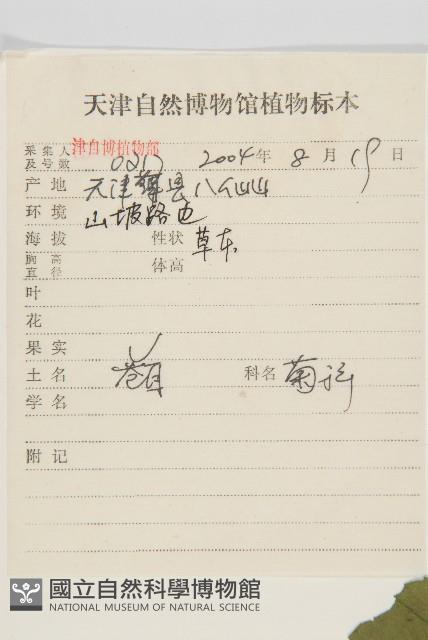 天津自然博物馆植物标本
采集人及号数 津自博植物部 0217 2004年 8月 19日
产地 天津蓟县八仙山
环境 山坡路边
海拔 性状 草本
胸高直径 体高
叶
花
果实
土名 苍耳 科名 菊科
学名
附记
國立自然科學博物館
NATIONAL MUSEUM OF NATURAL SCIENCE